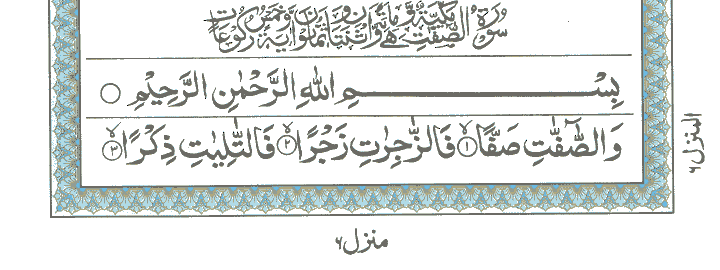 سُوْرَةُ الصّٰفّٰتِ مَكِّيَّةٌ وَّهِيَ مِائَةٌ وَّاثْنَتَانِ وَثَمَانُوْنَ اٰيَةً وَّخَمْسُ رُكُوْعَاتٍ
بِسْمِ اللهِ الرَّحْمٰنِ الرَّحِيْمِ
وَالصّٰٓفّٰتِ صَفًّا ۙ﴿۱﴾ فَالزّٰجِرٰتِ زَجْرًا ۙ﴿۲﴾ فَالتّٰلِيٰتِ ذِكْرًا ۙ﴿۳﴾
المنزل ٦
منزل ٦